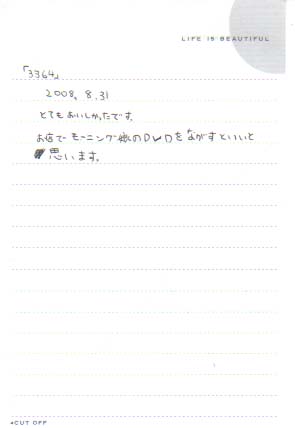 LIFE IS BEAUTIFUL
「3364」
2008. 8. 31
とてもおいしかったです。
お店でモーニング娘のDVDをながすといいと
思います。
CUT OFF